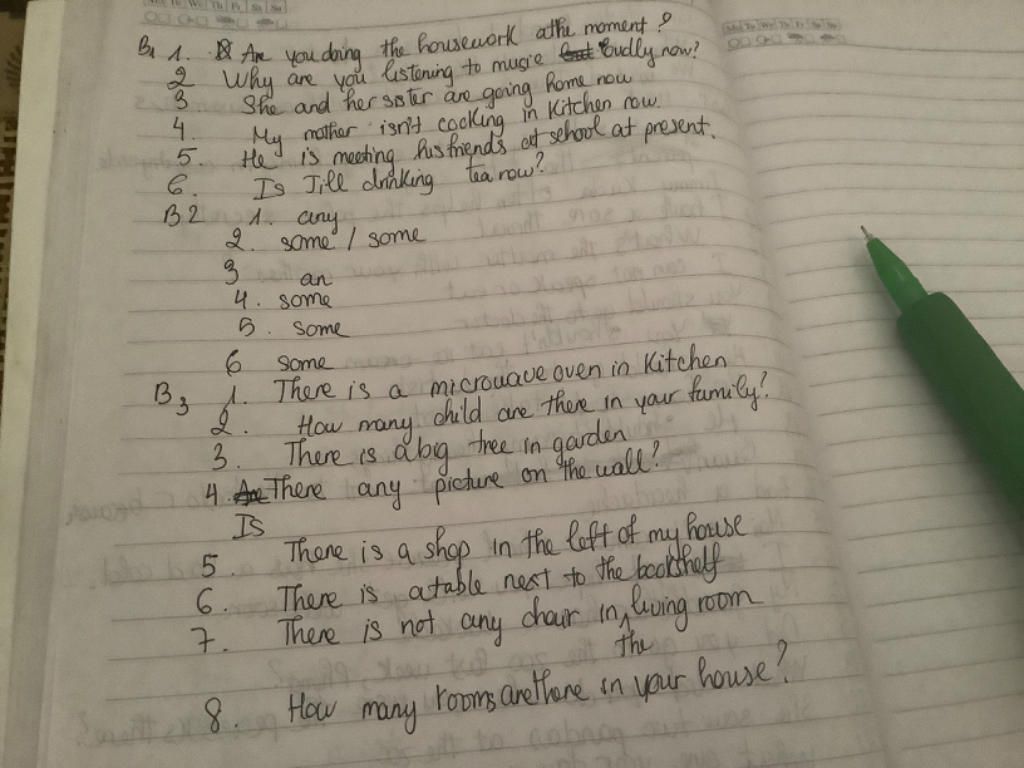 Mo Tu We Th Fr Sa Su
Mo Tu We Th Fr Sa Su
B1 1. Are you doing the housework at the moment?
2 Why are you listening to music loudly now?
3 She and her sister are going home now
4. My mother isn't cooking in Kitchen now.
5. He is meeting his friends at school at present.
6. Is Jill drinking tea now?
B2 1. any
2. some / some
3 an
4. some
5. some
6 some
B3 1. There is a microwave oven in Kitchen
2. How many child are there in your family?
3. There is a big tree in garden
4. There any picture on the wall?
Is
5. There is a shop in the left of my house
6. There is a table next to the bookshelf
7. There is not any chair in living room
the
8. How many rooms are there in your house?